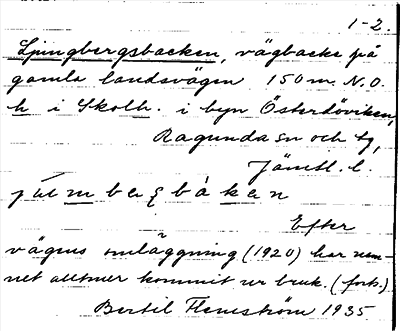 1-2.
Ljungbergsbacken, vägbacke på
gamla landsvägen 150 m. N.O.
h i Skolh. i byn Österdöviken,
Ragunda sn och tg,
Jämtl. l.
Efter
vägens omläggning (1920) har nam-
net alltmer kommit ur bruk. (forts.)
Bertil Flemström 1935